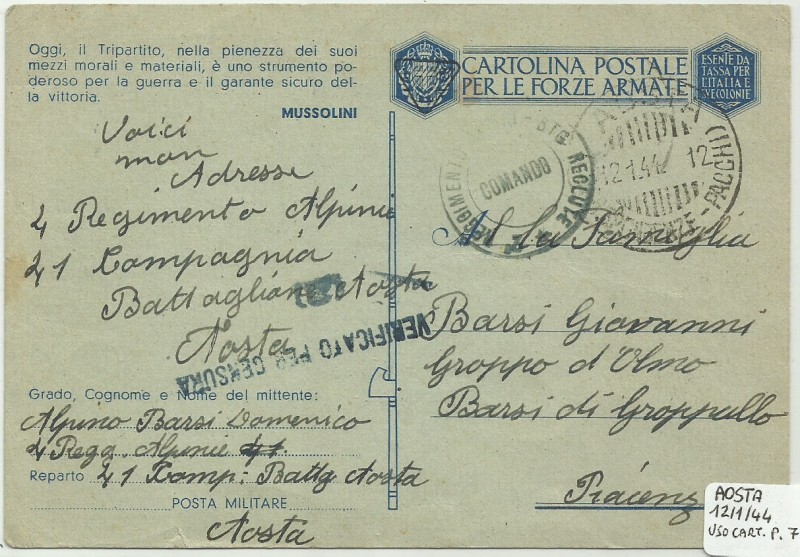 Oggi, il Tripartito, nella pienezza dei suoi
mezzi morali e materiali, è uno strumento po-
deroso per la guerra e il garante sicuro del-
la vittoria.
MUSSOLINI
CARTOLINA POSTALE
PER LE FORZE ARMATE
ESENTE DA
TASSA PER
L'ITALIA E
VE COLONIE
COMANDO
RECLUTE
12.1.44 12
Voici
mon
Adresse
4 Regimento Alpini
41 Compagnia
Battaglione Aosta
Aosta
VERIFICATO PER CENSURA
Al La Famiglia
Barsi Giovanni
Groppo d'Olmo
Barsi di Groppallo
Piacenz
Grado, Cognome e Nome del mittente:
Alpino Barsi Domenico
4 Regg. Alpinie
Reparto 41 Comp: Battg Aosta
POSTA MILITARE
Aosta
AOSTA
12/1/44
USO CART. P. 7